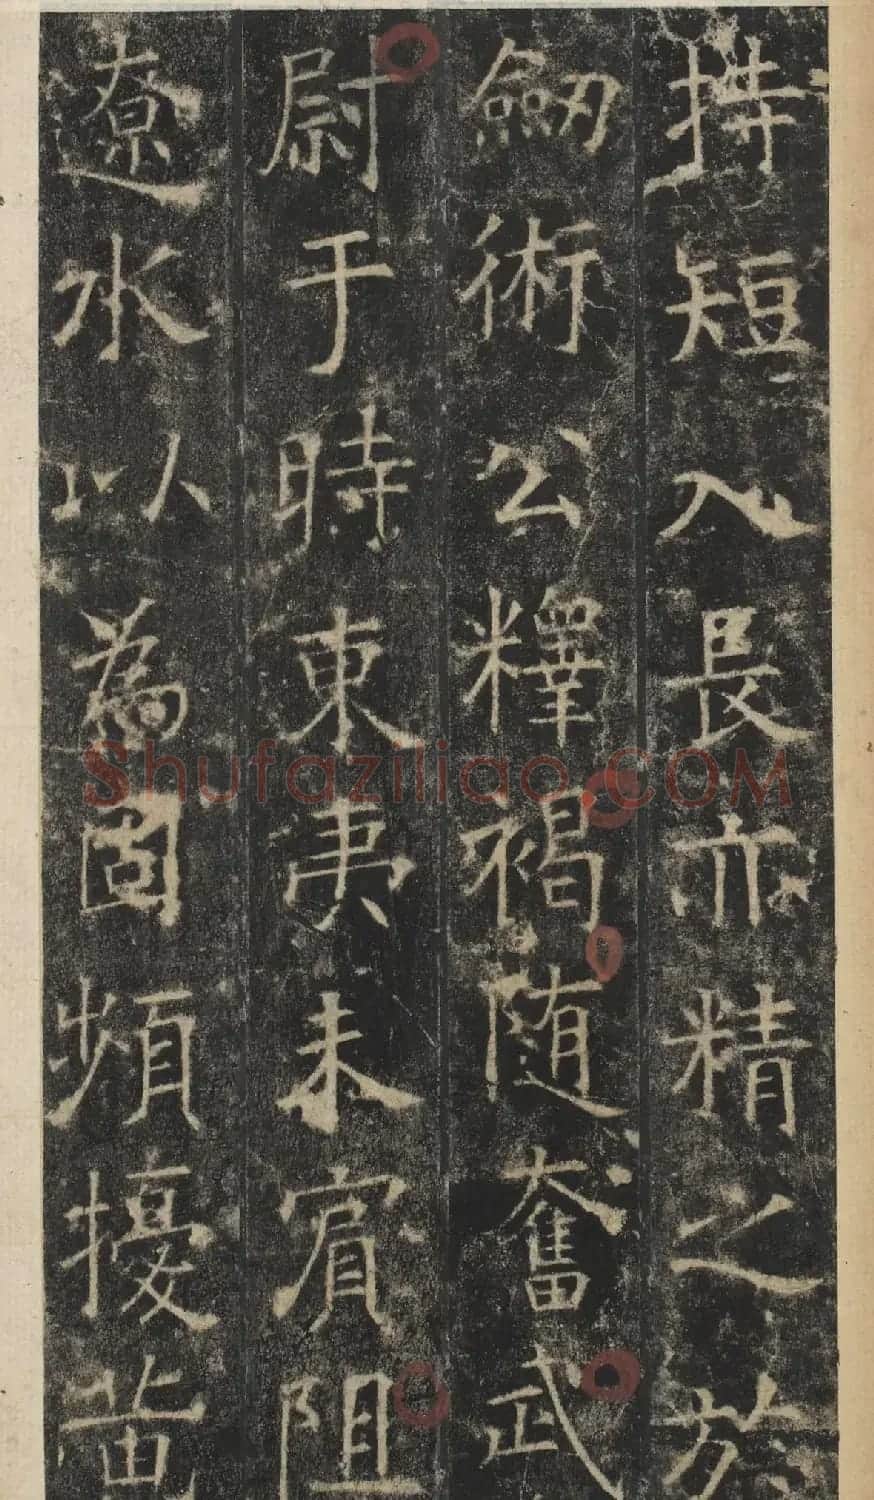 持短入長亦精之於
劒術公釋褐随奮武
尉于時東夷未賓阻
遼水以為固頻擾
Shufaziliao.COM